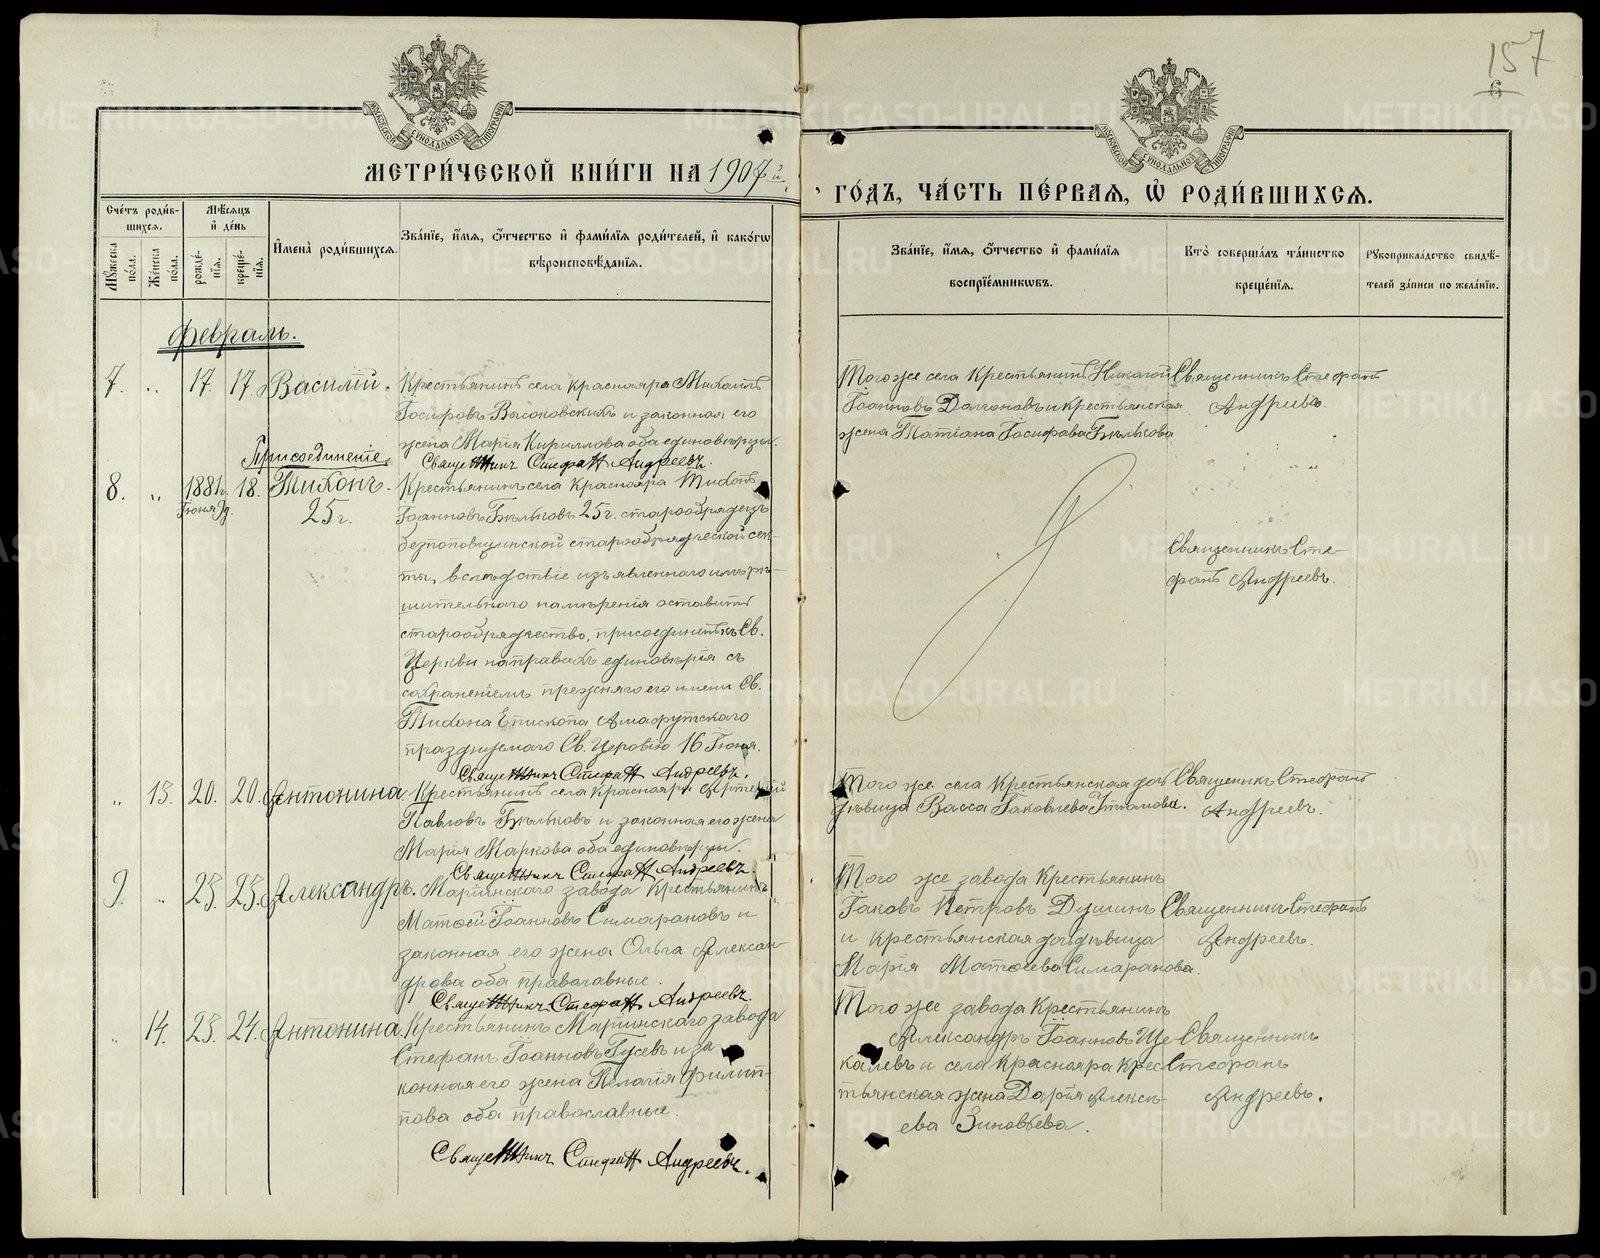 157
6
МЕТРИ́ЧЕСКОЙ КНИ́ГИ НА 1907 й.
ГО́ДЪ, ЧА́СТЬ ПЕ́РВАЯ, Ѡ҆ РОДИ́ВШИХСЯ.
Сче́тъ роди́в-
шихся.
Мѣ́сяцъ
и҆ де́нь
Мꙋ́жеска
по́ла.
Же́нска
по́ла.
рожде́-
нїя.
креще́-
нїя.
И҆мена̀ роди́вшихся.
Зва́нїе, и҆́мя, ѻ҆́тчество и҆ фами́лїя роди́телей, и҆ како́гѡ
вѣроисповѣ́данїя.
Зва́нїе, и҆́мя, ѻ҆́тчество и҆ фами́лїя
воспрїе́мникѡвъ.
Кто̀ соверша́лъ та́инство
креще́нїя.
Рꙋкоприкла́дство свидѣ́-
телей за́писи по жела́нїю.
Февраль.
7. „ 17. 17. Василій. Крестьянинъ села Краснояра Михаилъ
Іосифовъ Высоковскихъ и законная его
жена Марія Кириллова оба единовѣрцы.
Священникъ Стефанъ Андреевъ.
Того же села крестьянинъ Николай
Іоанновъ Долгоновъ и крестьянская
жена Татіана Іосифова Бѣлькова
Священникъ Стефанъ
Андреевъ.
Присоединеніе
8. „ 1881г. 18. Тихонъ. Крестьянинъ села Краснояра Тихонъ
Іюня 9д. 25 г. Іоанновъ Бѣльковъ 25 г. старообрядецъ
безпоповщинской старообрядческой сек-
ты, вслѣдствіе изъявленнаго имъ рѣ-
шительнаго намѣренія оставить
старообрядчество, присоединенъ къ Св.
Церкви на правахъ единовѣрія съ
сохраненіемъ прежняго его имени Св.
Тихона Епископа Амафутскаго
празднуемаго Св. Церковію 16 Іюня.
Священникъ Стефанъ Андреевъ.
Священникъ Сте-
фанъ Андреевъ.
„ 13. 20. 20. Антонина. Крестьянинъ села Краснояра Артемій
Павловъ Бѣльковъ и законная его жена
Марія Маркова оба единовѣрцы.
Священникъ Стефанъ Андреевъ.
Того же села крестьянская дочь
дѣвица Васса Іаковлева Утюмова.
Священикъ Стефанъ
Андреевъ.
9. „ 23. 23. Александръ. Маріинскаго завода крестьянинъ
Матѳей Іоанновъ Симарановъ и
законная его жена Ольга Алексан-
дрова оба православные.
Священникъ Стефанъ Андреевъ.
Того же завода крестьянинъ
Іаковъ Петровъ Душинъ
и крестьянская дочь дѣвица
Марія Матѳеева Симаранова.
Священникъ Стефанъ
Андреевъ.
„ 14. 23. 24. Антонина. Крестьянинъ Маріинскаго завода
Стефанъ Іоанновъ Гусевъ и за-
конная его жена Пелагія Филип-
пова оба православные.
Священникъ Стефанъ Андреевъ.
Того же завода крестьянинъ
Александръ Іоанновъ Ще-
калевъ и села Краснояра крес-
тьянская жена Дарія Алексѣ-
ева Зиновьева.
Священникъ
Стефанъ
Андреевъ.